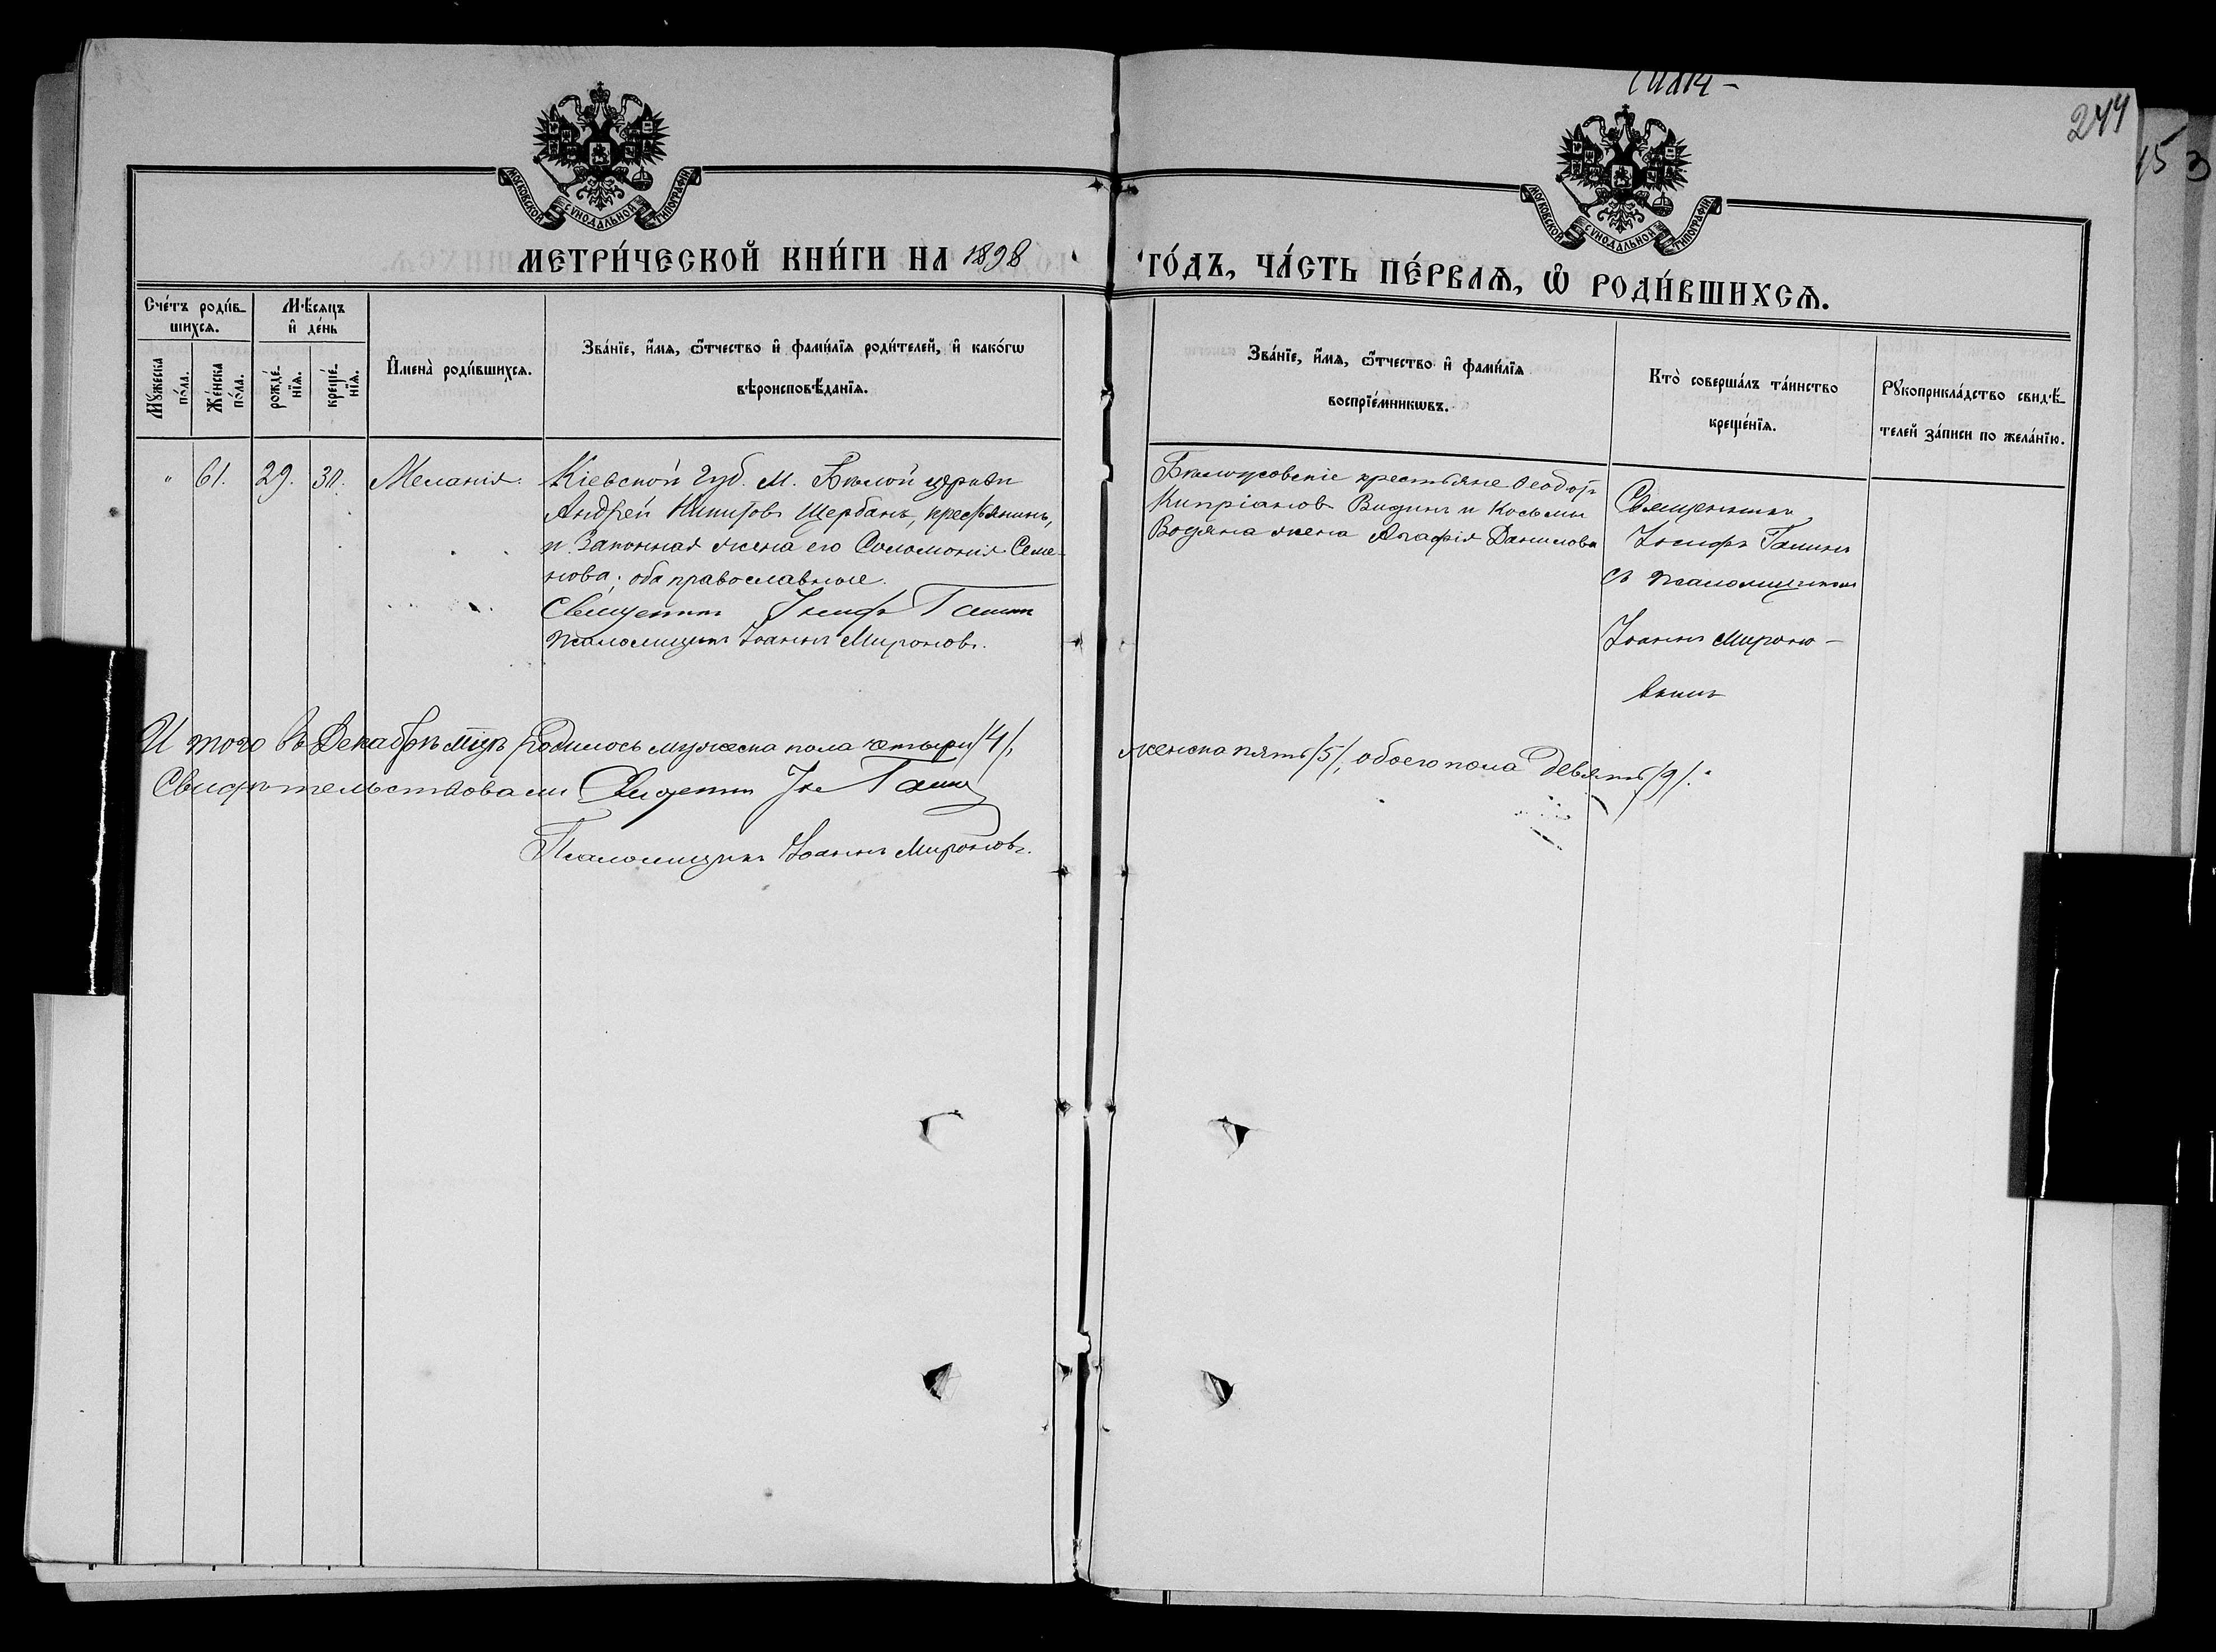 244
15
МОСКОВСКОЙ СѴНОДАЛЬНОЙ ТИПОГРАФІИ
МОСКОВСКОЙ СѴНОДАЛЬНОЙ ТИПОГРАФІИ
МЕТРИ́ЧЕСКОЙ КНИ́ГИ НА 1898
ГО́ДЪ, ЧА́СТЬ ПЕ́РВАѦ, Ѽ РОДИ́ВШИХСѦ.
Сче́тъ роди́в-
шихсѧ.
Мꙋжеска по́ла.
Же́нска по́ла.
М·ѣсяцъ
и҆ де́нь
рожде́-
нїѧ.
креще́-
нїѧ.
И҆мена̀ роди́вшихсѧ.
Зва́нїе, и҆́мѧ, ѻ҆́тчество и҆ фами́лїѧ роди́телей, и҆ како́гѡ
вѣроисповѣ́данїѧ.
Зва́нїе, и҆́мѧ, ѻ҆́тчество и҆ фами́лїѧ
воспрїе́мникѡвъ.
Кто̀ соверша́лъ та́инство
креще́нїѧ.
Рꙋкоприкла́дство свидѣ́-
телей за́писи по жела́нїю.
"
61.
29.
30.
Меланія.
Кіевской губ. М. Бѣлой церкви
Андрей Никитовъ Щербанъ, крестьянинъ,
и законная жена его Соломонія Семе-
нова; оба православные.
Священникъ Іосифъ
Псаломщикъ Іоаннъ Мироновъ.
крестьяне Ѳеодоръ
Кипріановъ и Косьмы
Водяна жена Агафія Данилова
Священникъ
Іосифъ
съ псаломщикомъ
Іоанномъ Мироно-
вымъ
Итого въ Декабрѣ мцѣ родилось мужеска пола четыри /4/,
женска пять /5/, обоего пола девять /9/.
Свидѣтельствовали Священникъ
Псаломщикъ Іоаннъ Мироновъ.